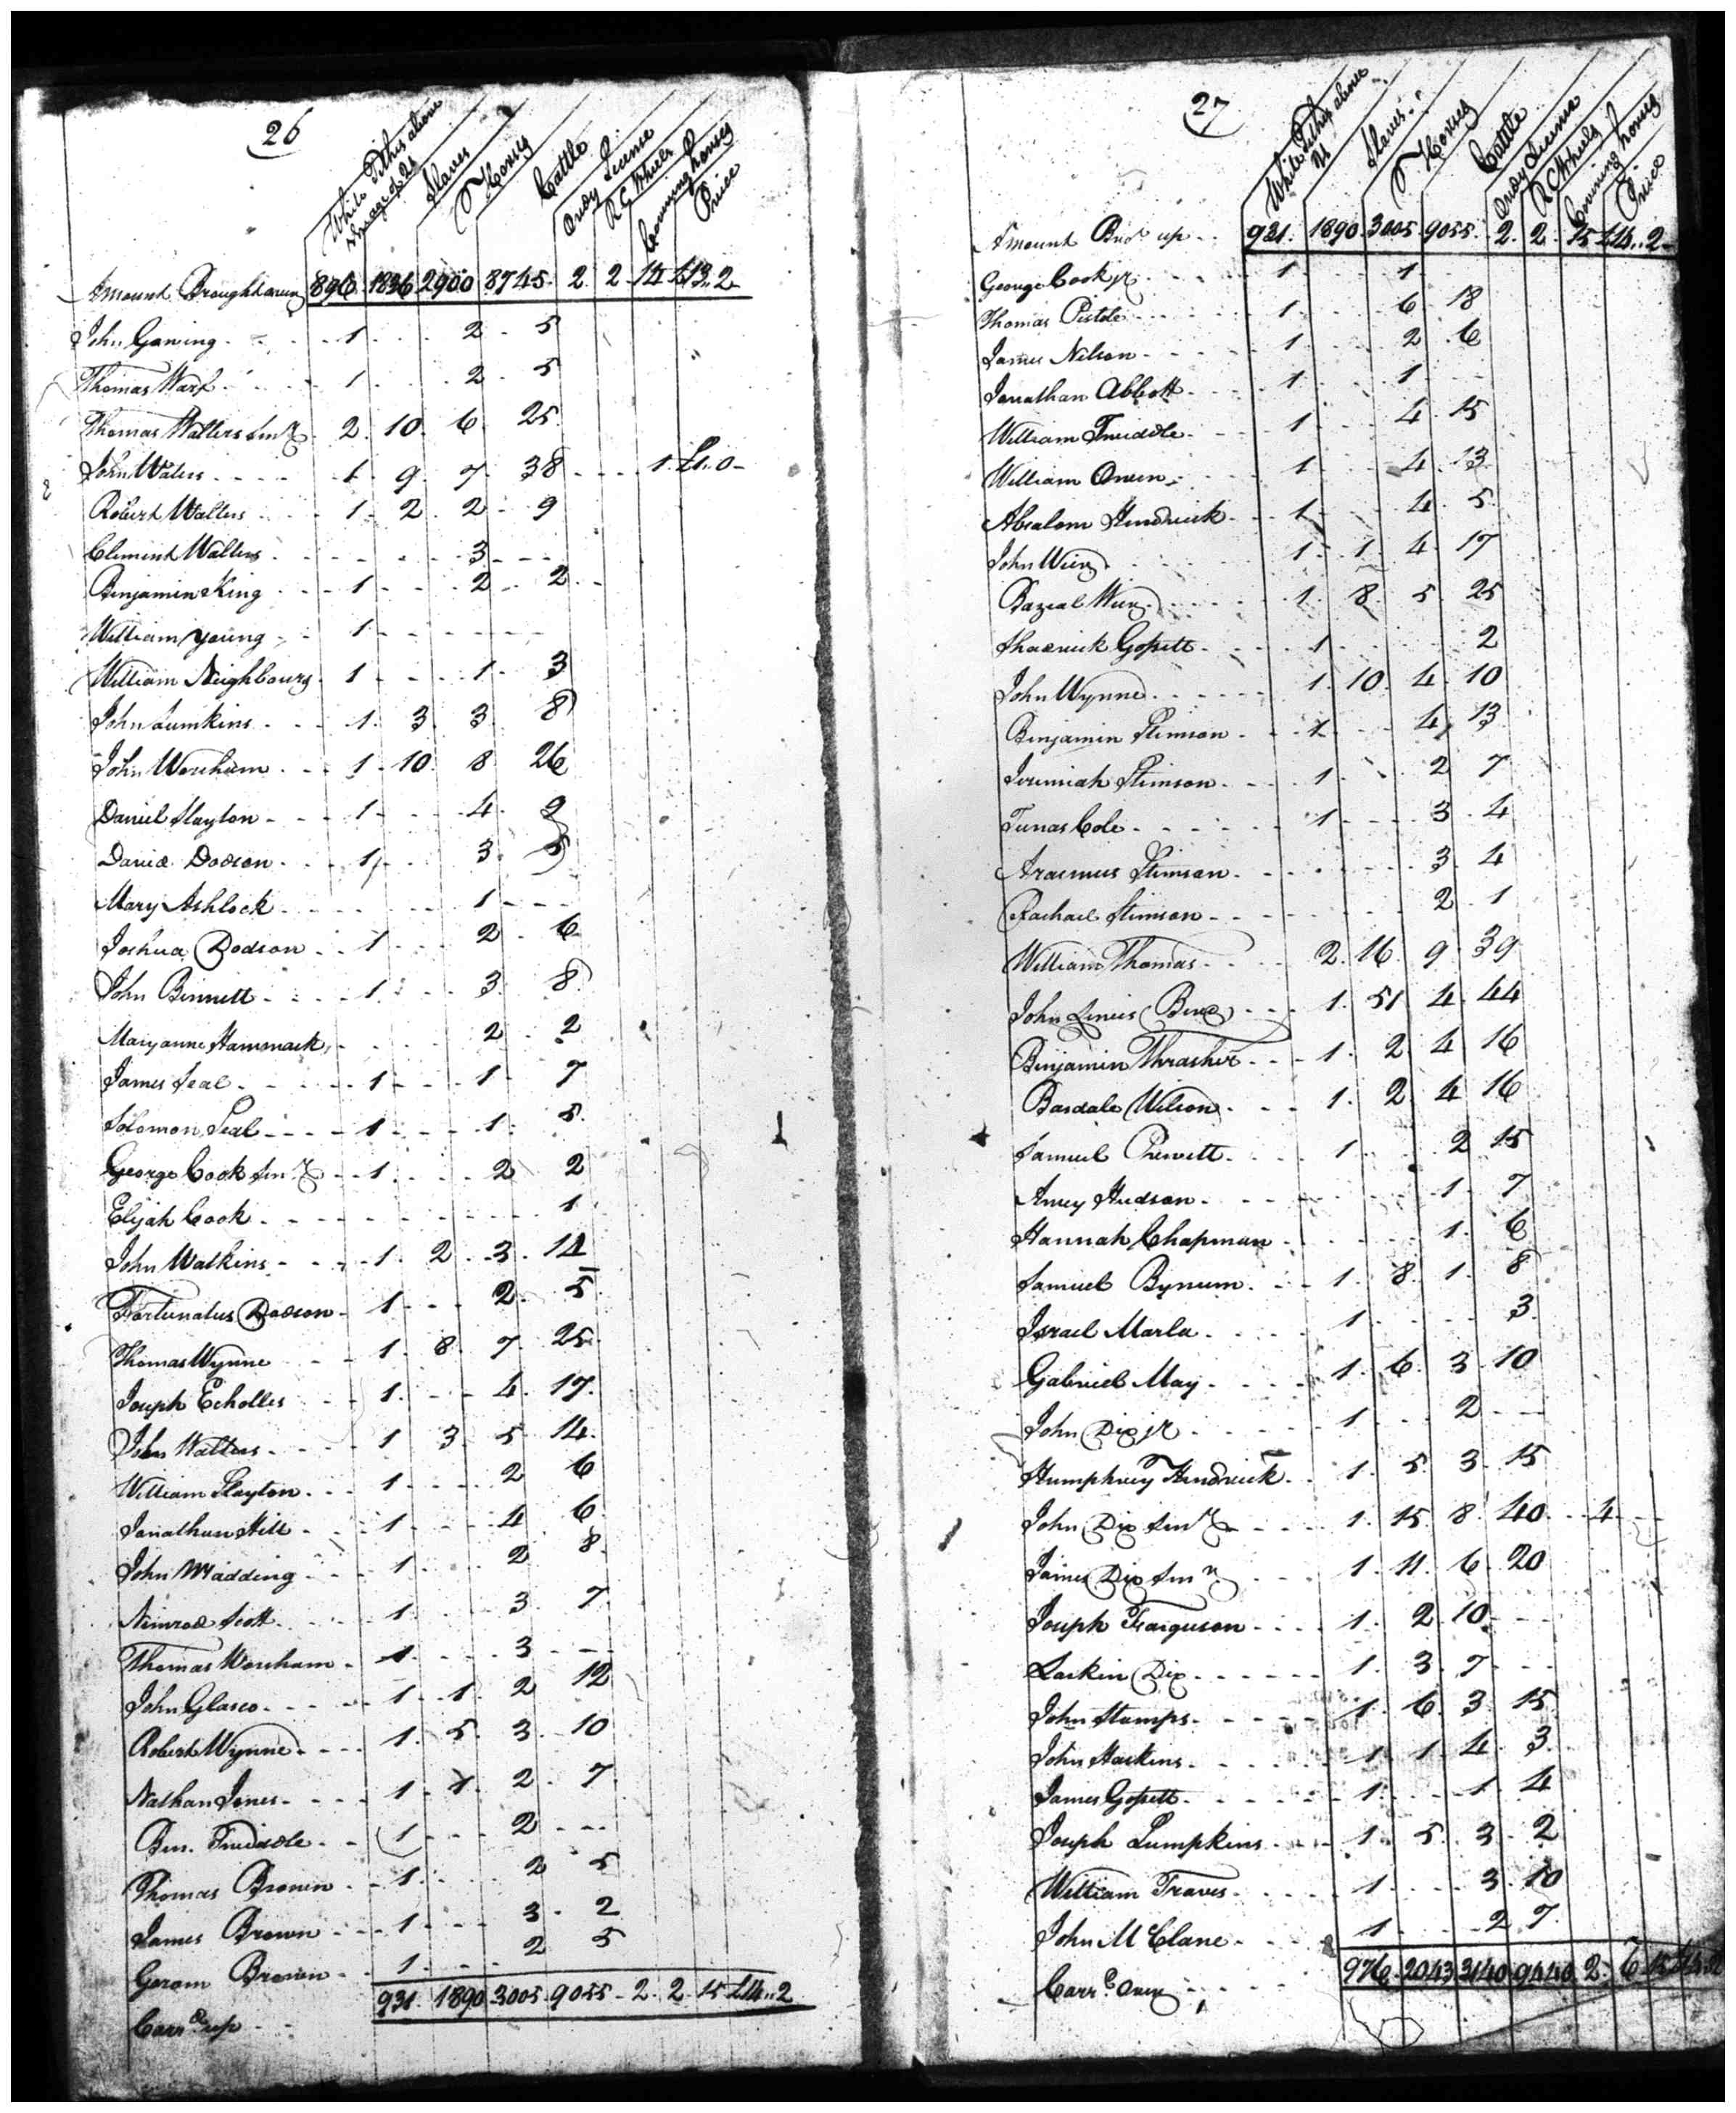 26
White Tithes above the age of 21 Slaves Horses Cattle Ordy License R C Wheels Covering horses Price
Amount Brought over 896. 1836 2900 8745. 2. 2. 14 £13..2
John Gawing 1 2 5
Thomas Warf 1 2 5
Thomas Walters Senr. 2. 10. 6 25
John Waters 1. 9. 7. 38 1. £1..0
Robert Walters 1. 2. 2. 9
Clement Walters 3
Benjamin King 1 2 2
William Young 1
William Neighbours 1 1 3
John Lumkins 1. 3. 3. 8
John Worsham 1 10. 8 26
Daniel Slayton 1 4 9
David Dodson 1 3 5
Mary Ashlock 1
Joshua Dodson 1 2 6
John Binnett 1 3 8
Maryanne Hammack 2 2
James Seal 1 1 7
Solomon Seal 1 1 5
George Cook Senr. 1 2 2
Elijah Cook 1
John Watkins 1. 2. 3. 14
Fortunatus Dodson 1 2 5
Thomas Wynne 1. 8. 7. 25
Joseph Echolles 1 4. 17
John Walters 1 3 5 14
William Slayton 1 2 6
Jonathan Hill 1 4 6
John Madding 1 2 8
Nimrod Scott 1 3 7
Thomas Worsham 1 3
John Glasco 1 1 2 12
Robert Wynne 1. 5. 3. 10
Nathan Jones 1 1 2 7
Ben. Twiddle 1 2
Thomas Brown 1 2 5
James Brown 1 3 2
Geram Brown 1 2 5
Carrd. up 931. 1890 3005. 9055. 2. 2. 15 £14..2
27
White Tithes above 21 Slaves Horses Cattle Ordy License R C Wheels Covering horses Price
Amount Brot. up 931. 1890. 3005. 9055. 2. 2. 15 £14..2
George Cook jr 1 1
Thomas Pistole 1 6 18
James Nelson 1 2 6
Jonathan Abbott 1 1
William Twiddle 1 4 15
William Owen 1 4 13
Absalom Hendrick 1 4 5
John Wier 1 1 4 17
Bazeal Wier 1. 8. 5 25
Shadrick Gossett 1 2
John Wynne 1. 10. 4. 10
Benjamin Stimson 1 4 13
Jeremiah Stimson 1 2 7
Tunas Cole 1 3 4
Arasmus Stimson 3 4
Rachael Stimson 2 1
William Thomas 2. 16. 9 39
John Lewis (Bird) 1. 51 4. 44
Benjamin Thrasher 1. 2 4 16
Basdale Wilson 1. 2 4 16
Samuel Prewett 1 2 15
Amey Hudson 1 7
Hannah Chapman 1. 6
Samuel Bynum 1. 8. 1. 8
Israel Marla 1 3
Gabriel May 1. 6. 3. 10
John Dix jr 1 2
Humphrey Hendrick 1. 5. 3. 15
John Dix Senr. 1. 15. 8. 40 4
James Dix Senr. 1. 11. 6. 20
Joseph Farguson 1. 2 10
Larkin Dix 1. 3. 7
John Stamps 1. 6. 3. 15
John Haskins 1 1 4 3
James Gossett 1 1 4
Joseph Lumpkins 1. 5. 3. 2
William Traves 1 3. 10
John McClane 1 2 7
Carrd. over 976. 2043 3140 9440. 2. 6 15 £14..2